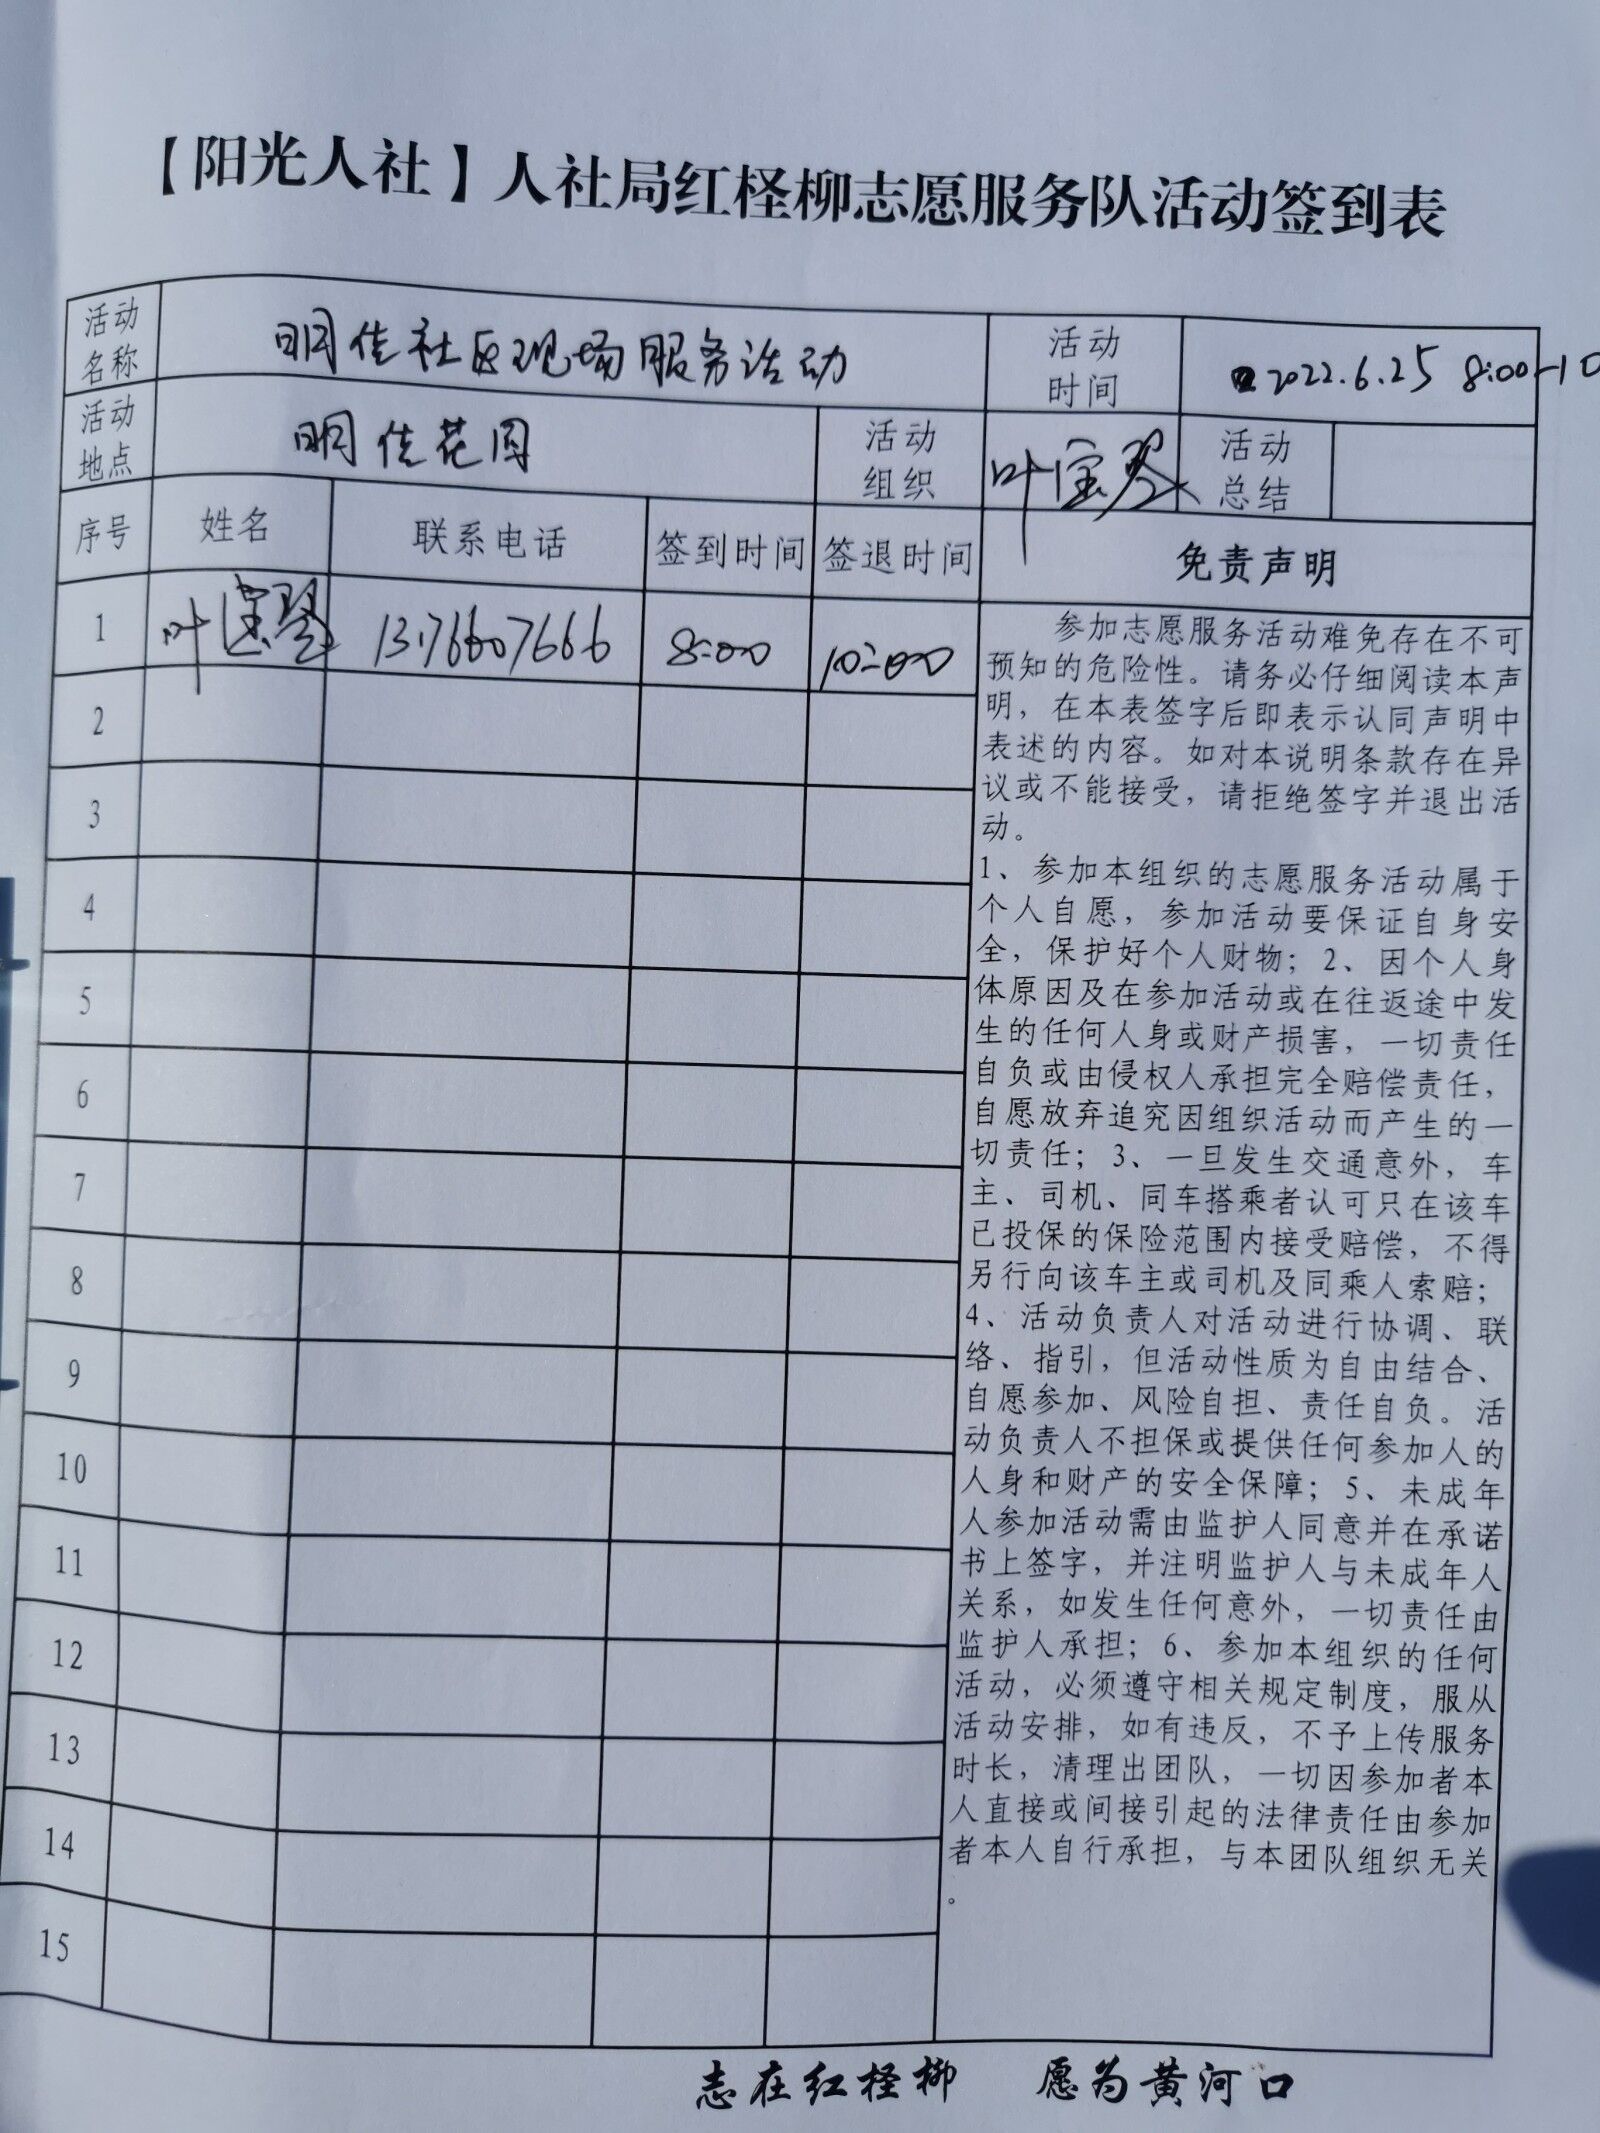 【阳光人社】人社局红柽柳志愿服务队活动签到表
活动名称 明佳社区现场服务活动 活动时间 2022.6.25 8:00-10
活动地点 明佳花园 活动组织 叶宝琴 活动总结
序号 姓名 联系电话 签到时间 签退时间 免责声明
1 叶宝琴 13176607666 8:00 10:00
2
3
4
5
6
7
8
9
10
11
12
13
14
15
参加志愿服务活动难免存在不可
预知的危险性。请务必仔细阅读本声
明，在本表签字后即表示认同声明中
表述的内容。如对本说明条款存在异
议或不能接受，请拒绝签字并退出活
动。
1、参加本组织的志愿服务活动属于
个人自愿，参加活动要保证自身安
全，保护好个人财物；2、因个人身
体原因及在参加活动或在往返途中发
生的任何人身或财产损害，一切责任
自负或由侵权人承担完全赔偿责任，
自愿放弃追究因组织活动而产生的一
切责任；3、一旦发生交通意外，车
主、司机、同车搭乘者认可只在该车
已投保的保险范围内接受赔偿，不得
另行向该车主或司机及同乘人索赔；
4、活动负责人对活动进行协调、联
络、指引，但活动性质为自由结合、
自愿参加、风险自担、责任自负。活
动负责人不担保或提供任何参加人的
人身和财产的安全保障；5、未成年
人参加活动需由监护人同意并在承诺
书上签字，并注明监护人与未成年人
关系，如发生任何意外，一切责任由
监护人承担；6、参加本组织的任何
活动，必须遵守相关规定制度，服从
活动安排，如有违反，不予上传服务
时长，清理出团队，一切因参加者本
人直接或间接引起的法律责任由参加
者本人自行承担，与本团队组织无关
。
志在红柽柳 愿为黄河口